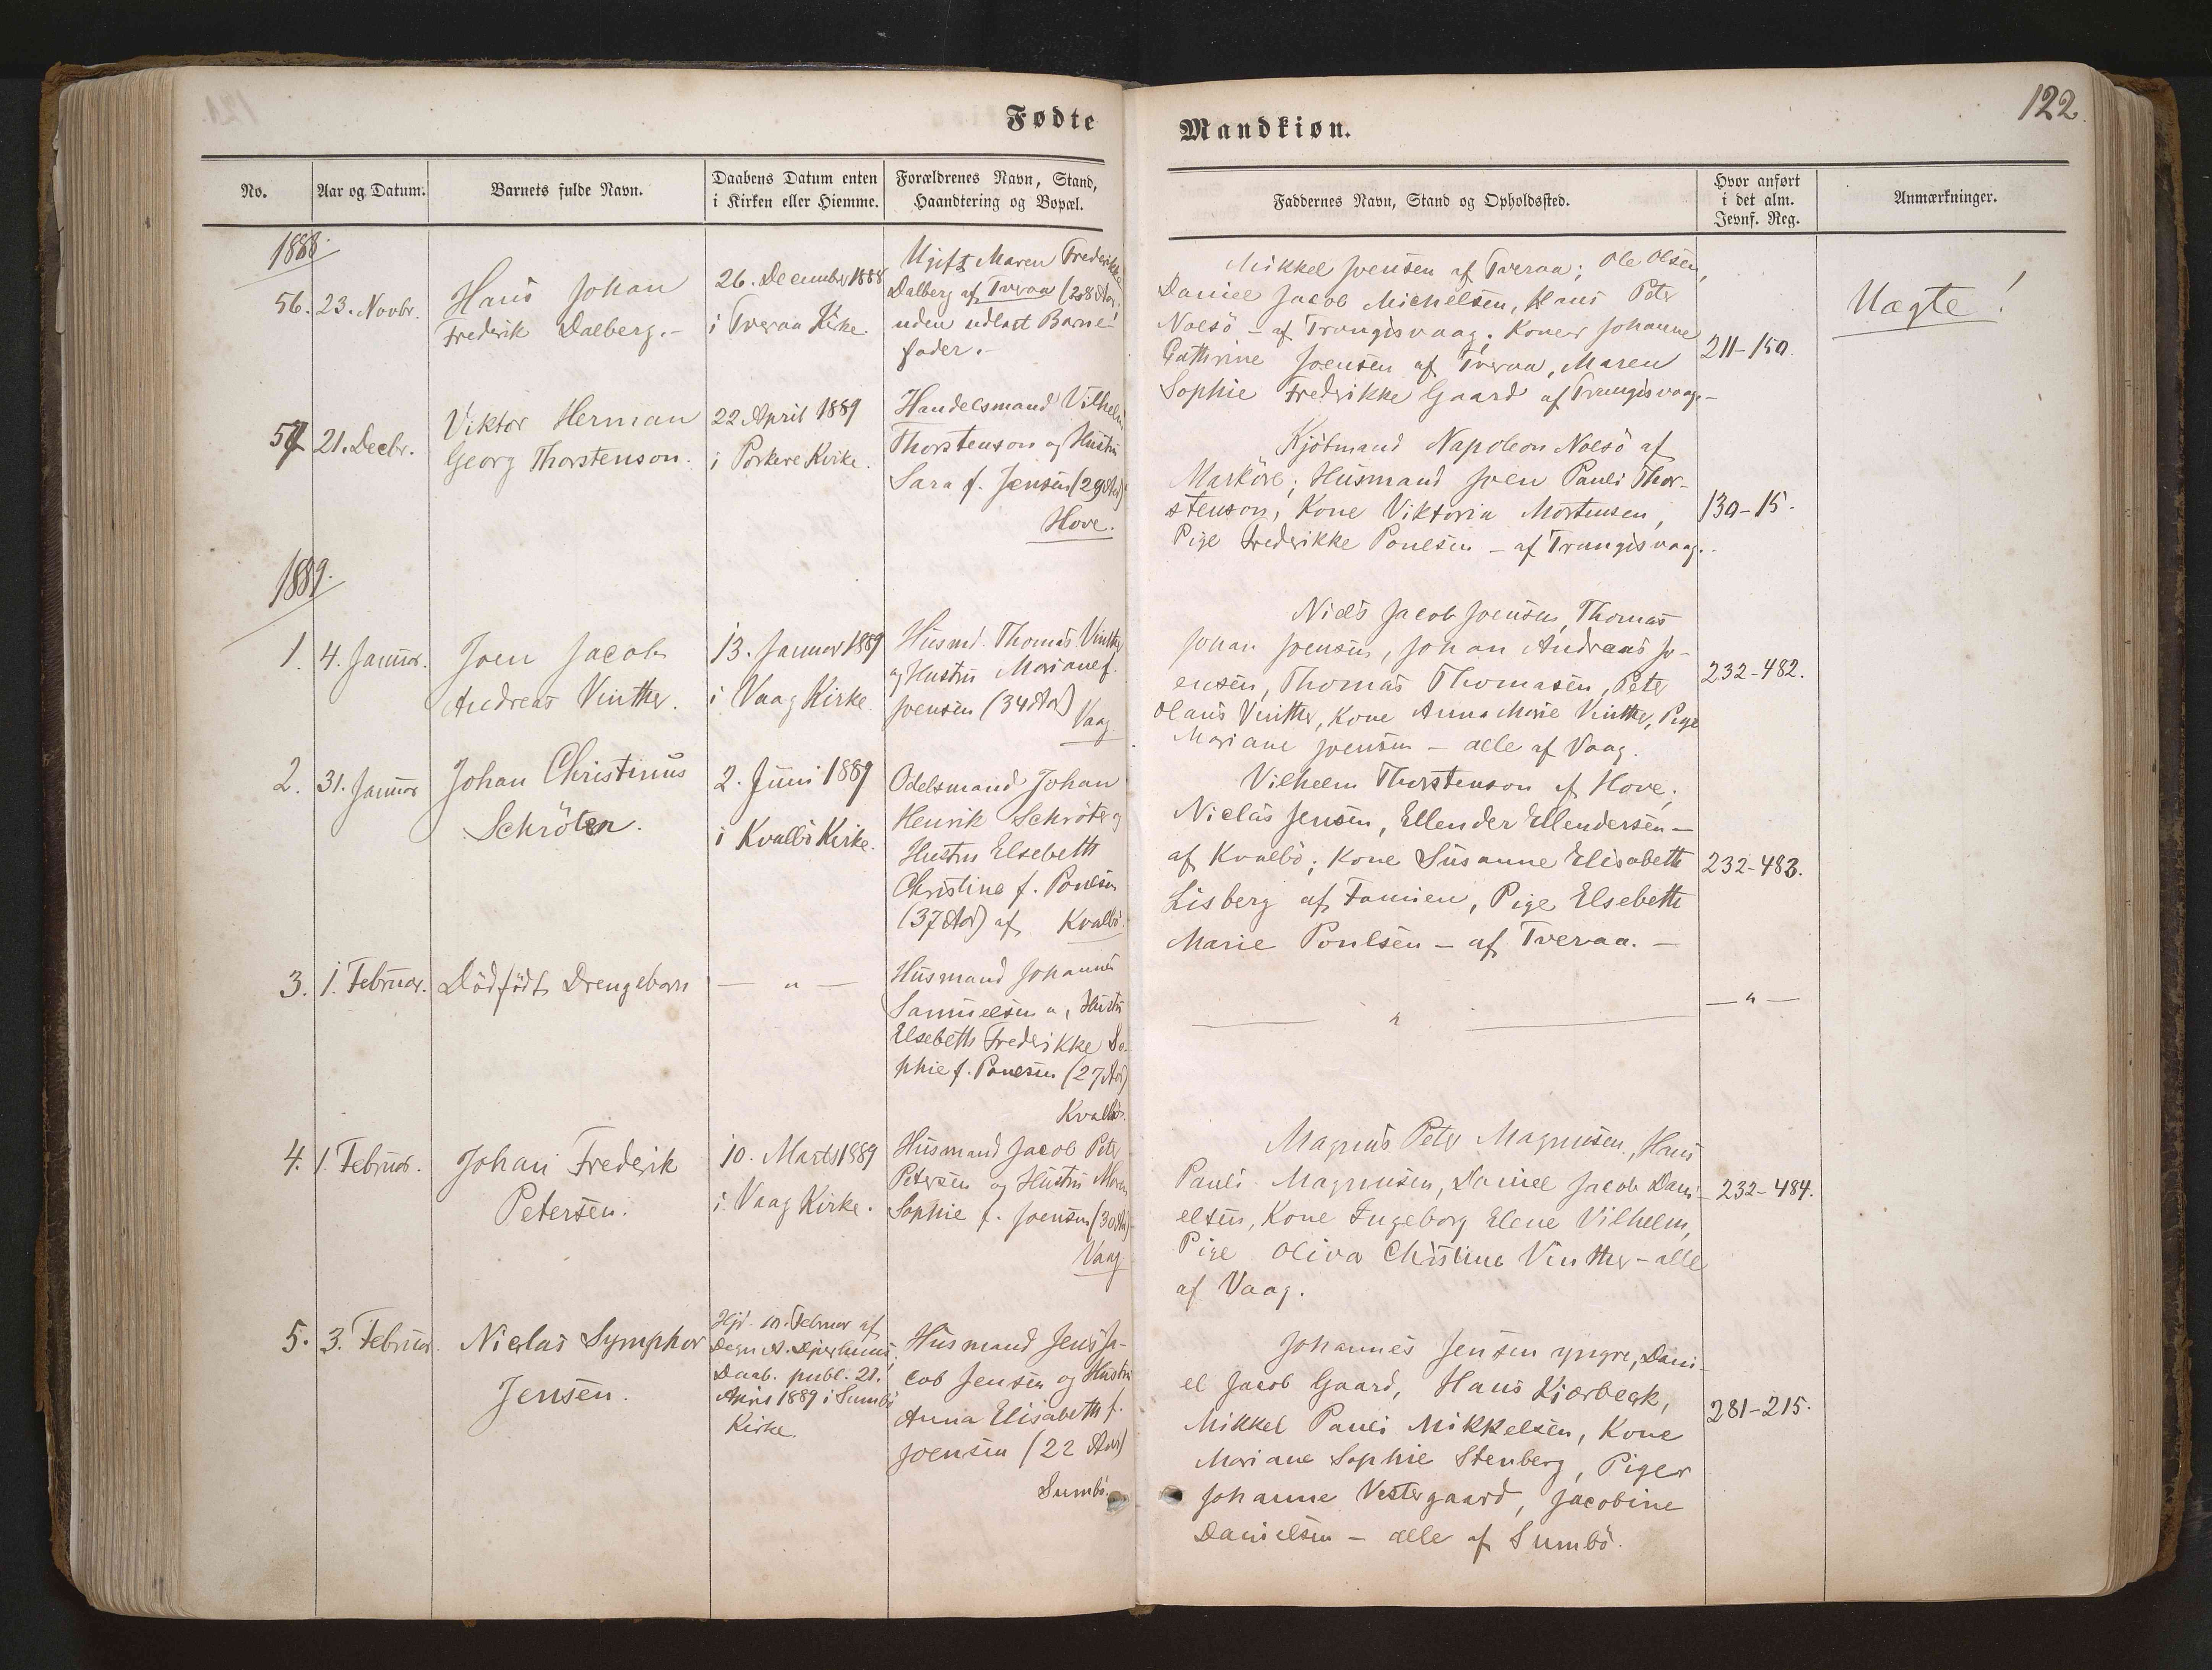 Fødte
No.
Aar og Datum.
Barnets fulde Navn.
Daabens Datum enten
i Kirken eller Hiemme.
Forældrenes Navn, Stand,
Haandtering og Bopæl.
1888.
56.
23. Novbr.
Hans Johan
Frederik Dalberg.-
26. December 1888
i Tveraa Kirke.
Ugift Maren Frederikke
Dalberg af Tveraa (28 Aar)
uden udlagt Barne-
fader.-
57
21. Decbr.
Viktor Herman
Georg Thorstenson.
22 April 1889
i Porkere Kirke.
Handelsmand Vilhelm
Thorstenson og Hustru
Sara f. Jensen (29 Aar)
Hove.
1889.
1.
4. Januar.
Joen Jacob
Andreas Vinther.
13. Januar 1889
i Vaag Kirke.
Husmd. Thomas Vinther
og Hustru Mariane f.
Joensen (34 Aar)
Vaag
2.
31. Januar
Johan Christinus
Schröter.
2. Juni 1889
i Kvalbö Kirke.
Odelsmand Johan
Henrik Schröter og
Hustru Elsebeth
Christine f. Poulsen
(37 Aar) af Kvalbö.
3.
1. Februar.
Dödfödt Drengebarn
— " —
Husmand Johannes
Samuelsen, Hustru
Elsebeth Frederikke So-
phie f. Poulsen (27 Aar)
Kvalbö.
4.
1. Februar.
Johan Frederik
Petersen.
10. Marts 1889
i Vaag Kirke.
Husmand Jacob Peter
Petersen og Hustru Maren
Sophie f. Joensen (30 Aar)
Vaag
5.
3. Februar.
Niclas Symphor
Jensen.
Hjd. 10. Februar af
Degn
Daab. publ. 21.
April 1889 i Sumbö
Kirke.
Husmand Jens Ja-
cob Jensen og Hustru
Anna Elisabeth f.
Joensen (22 Aar)
Sumbö.
122.
Mandkiøn.
Faddernes Navn, Stand og Opholdssted.
Hvor anført
i det alm.
Jevnf. Reg.
Anmærkninger.
Mikkel Joensen af Tveraa; Ole Olsen,
Daniel Jacob Michelsen, Hans Peter
Nolsö - af Trangisvaag; Koner Johanne
Cathrine Joensen af Tveraa, Maren
Sophie Frederikke Gaard af Trangisvaag.-
211-150.
Uægte!
Kjöbmand Napoleon Nolsö af
Marköre; Husmand Joen Pauli Thor-
stenson, Kone Viktoria Mortensen,
Pige Frederikke Poulsen - af Trangisvaag.-
130-15.
Niels Jacob Joensen, Thomas
Johan Joensen, Johan Andreas Jo-
ensen, Thomas Thomasen, Peter
Olaus Vinther, Kone Anna Marie Vinther, Pige
Mariane Joensen - alle af Vaag.
232-482.
Vilhelm Thorstenson af Hove;
Niclas Jensen, Ellender Ellendersen -
af Kvalbö; Kone Susanne Elisabeth
Lisberg af Famien, Pige Elsebeth
Marie Poulsen - af Tveraa. -
232-483.
— " —
— " —
Magnus Peter Magnusen, Hans
Pauli Magnusen, Daniel Jacob Dani-
elsen, Kone Ingeborg Elene Vilhelm,
Pige Oliva Christine Vinther - alle
af Vaag.
232-484.
Johannes Jensen yngre, Dani-
el Jacob Gaard, Hans Kjærbeck,
Mikkel Pauli Mikkelsen, Kone
Mariane Sophie Stenberg, Piger
Johanne Vestergaard, Jacobine
Danielsen - alle af Sumbö.
281-215.